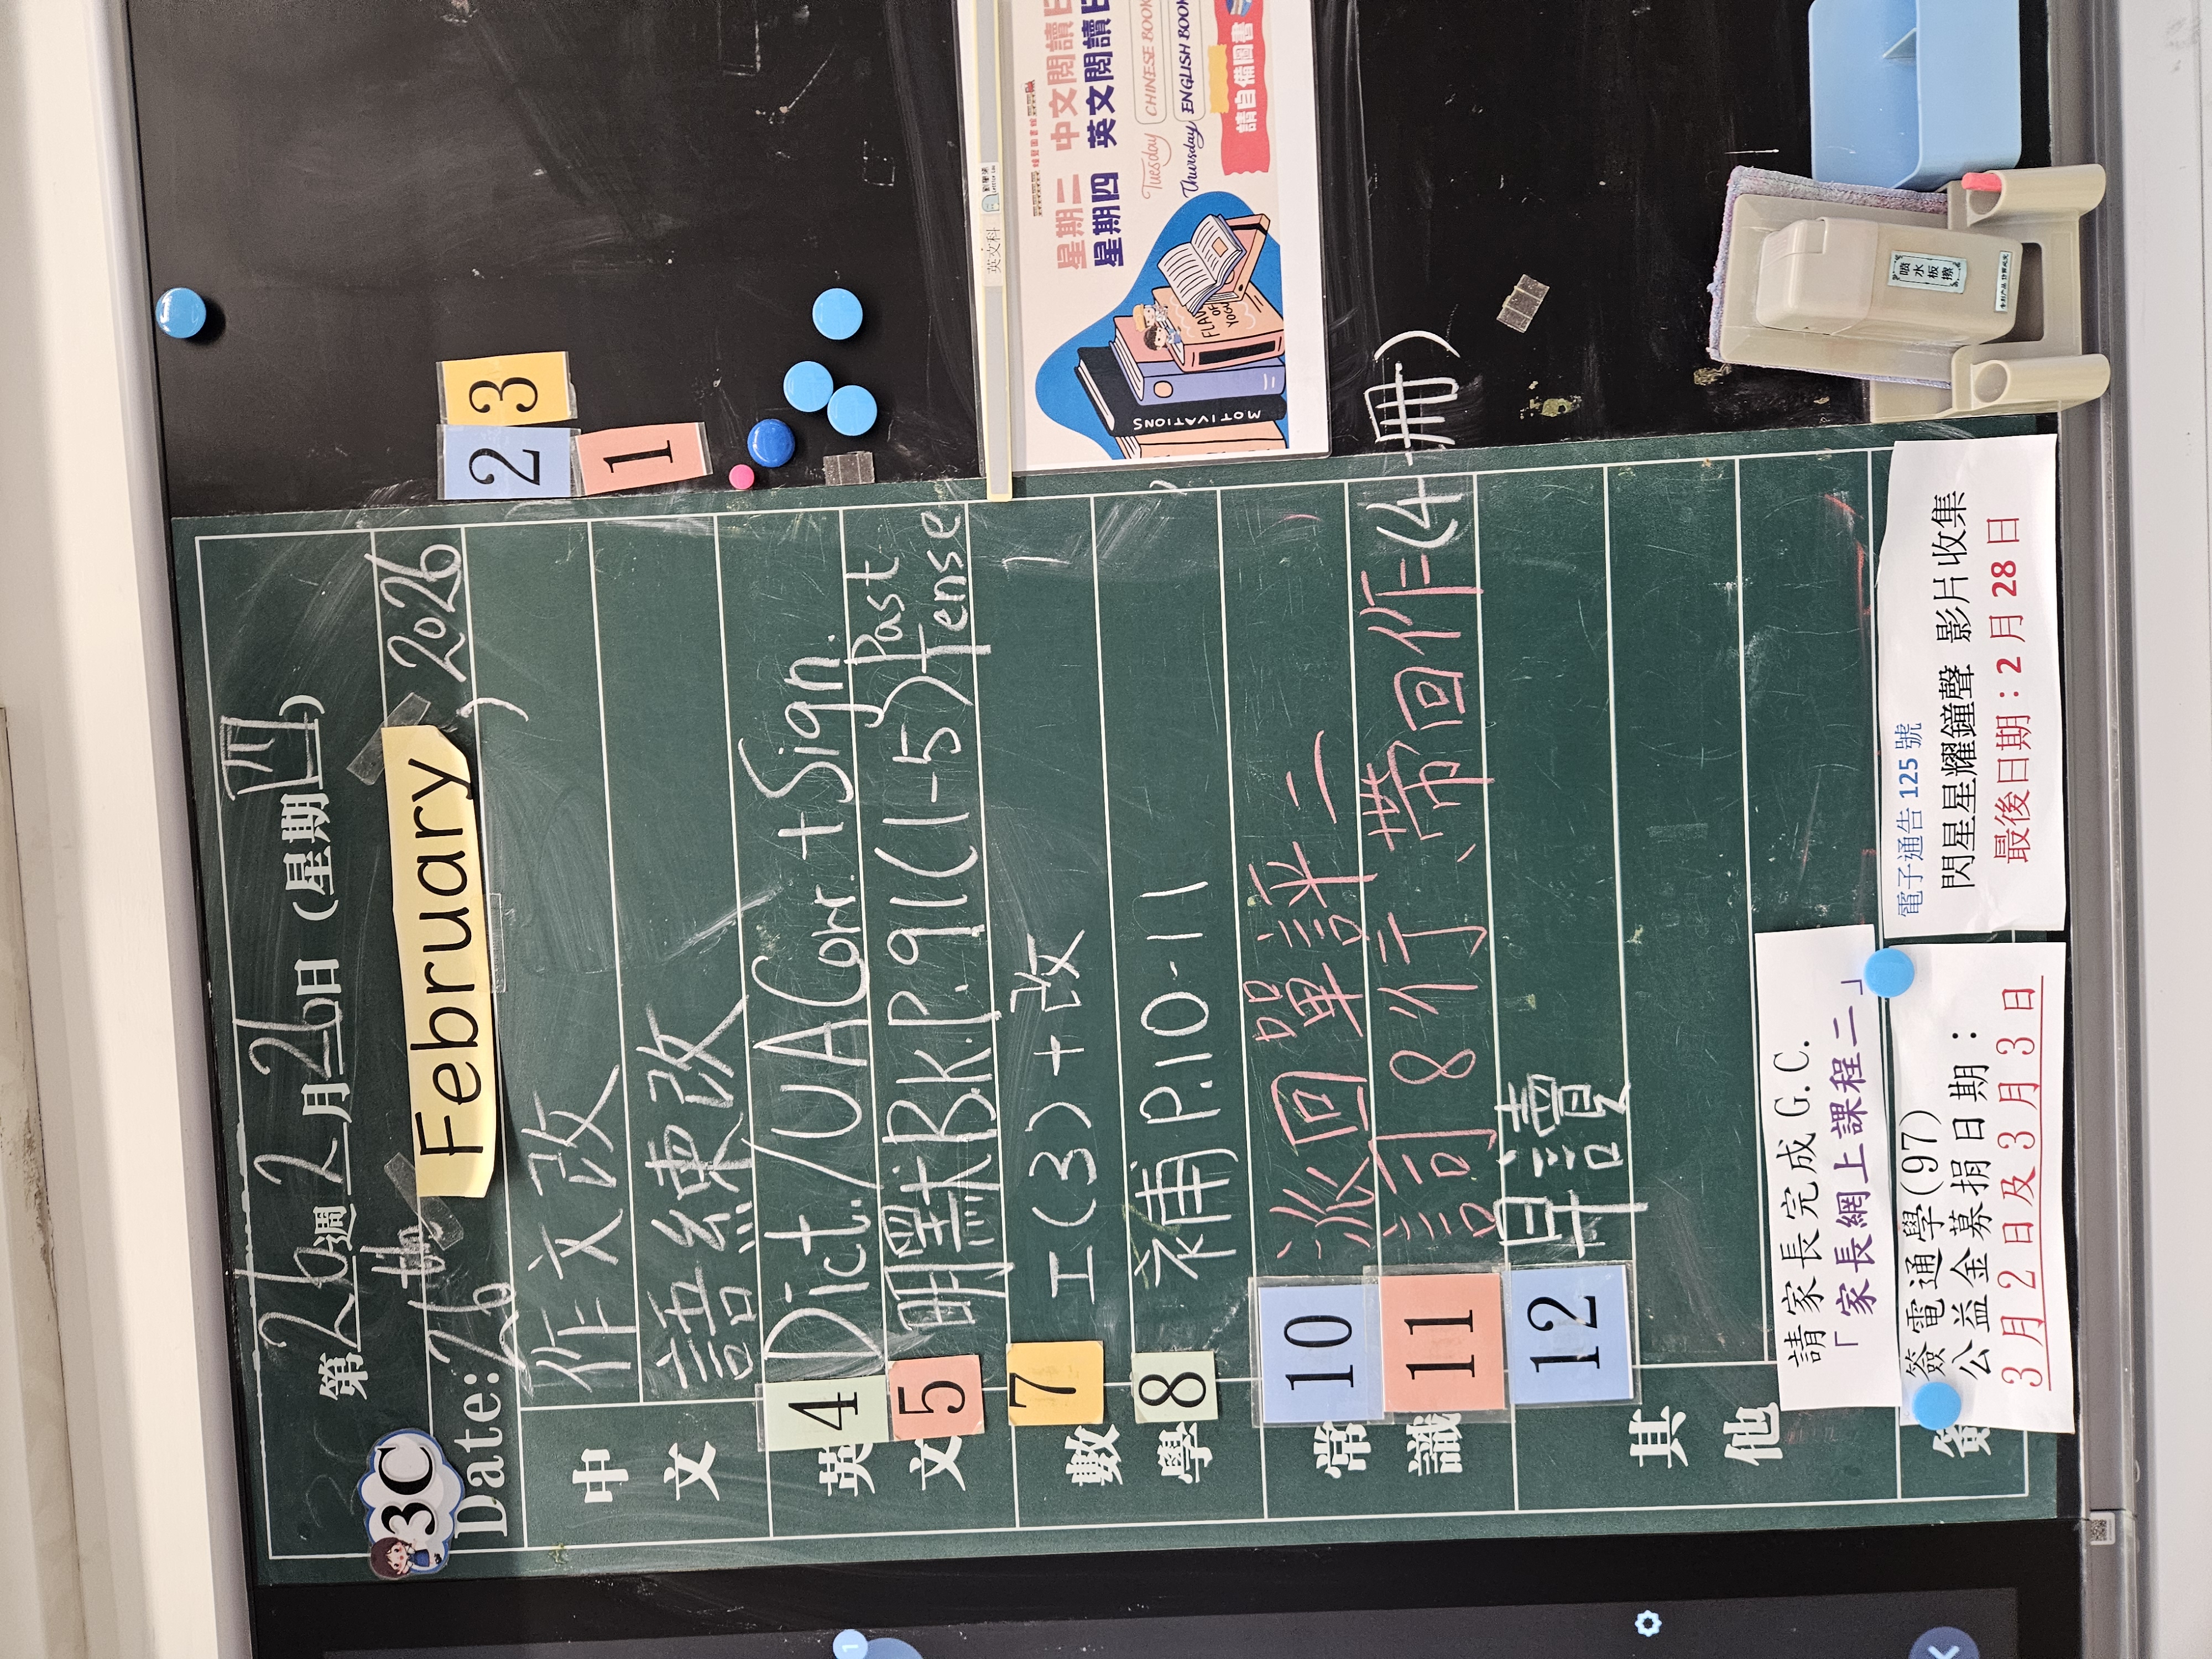 第26週2月26日 (星期四)
3C
Date: 26th February, 2026
中文
作文改
語練改
英文
4 Dict./UA Corr.+Sign.
5 明默Bk.P.91(1-5)Past Tense
數學
7 工(3)+改
8 補P.10-11
常識
10 派回單評二
11 訂8行、帶回作(4冊)
12 早讀
其他
請家長完成 G.C.
「家長網上課程二」
簽電通學(97)
公益金募捐日期：
3月2日及3月3日
電子通告 125 號
閃星星耀鐘聲 影片收集
最後日期：2 月 28 日
2 3
1
英文科
星期二 中文閱讀日
星期四 英文閱讀日
Tuesday CHINESE BOOK
Thursday ENGLISH BOOK
請自備圖書
MOTIVATIONS
噴水板擦
1